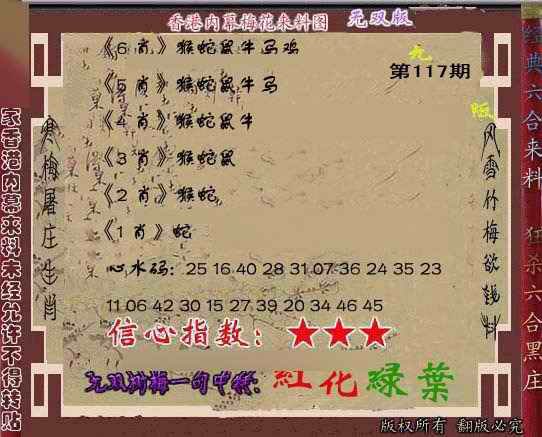 香港内幕梅花来料图 无双版
《6 肖》猴蛇鼠牛马鸡
《5 肖》猴蛇鼠牛马
《4 肖》猴蛇鼠牛
《3 肖》猴蛇鼠
《2 肖》猴蛇
《1 肖》蛇
第117期
心水码：25 16 40 28 31 07 36 24 35 23
11 06 42 30 15 27 39 20 34 46 45
信心指数：★★★
红化绿葉
版权所有 翻版必究
寒梅屠庄生肖
风雪竹梅欲钱料
经典六合来料 狂杀六合黑庄
香港内幕来料未经允许不得转贴